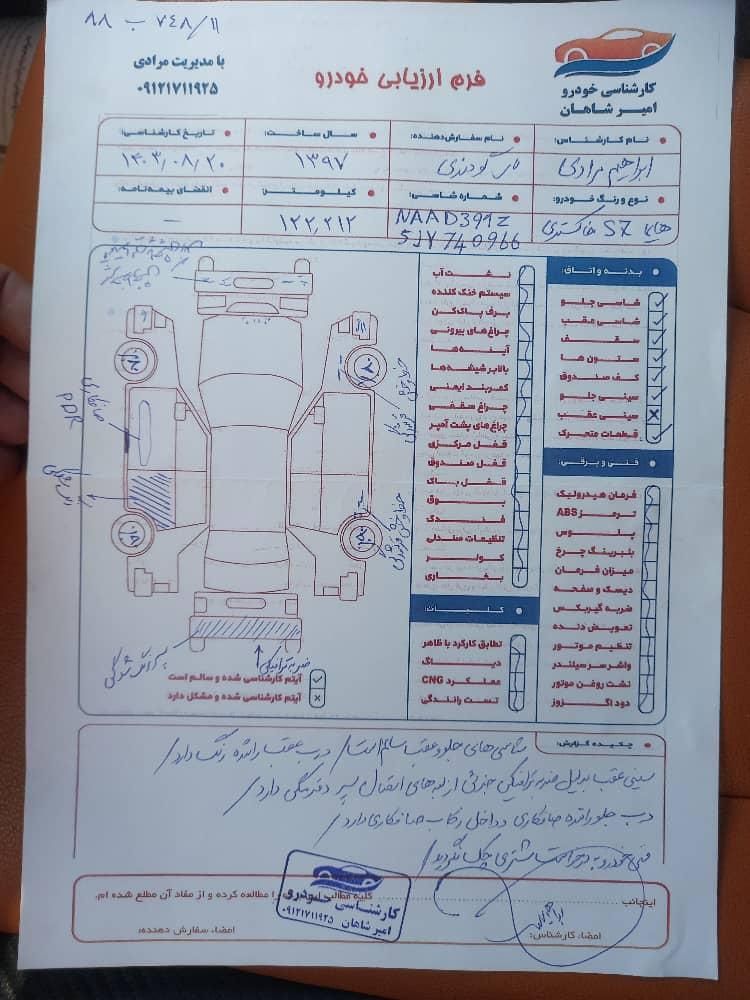 ۷۴۸/۱۱ ب ۸۸
با مدیریت مرادی
۰۹۱۲۱۷۱۱۹۲۵
فرم ارزیابی خودرو
کارشناسی خودرو
امیر شاهان
نام کارشناس:
نام سفارش‌دهنده:
سال ساخت:
تاریخ کارشناسی:
ابراهیم مرادی
۱۳۹۷
۱۴۰۳/۰۸/۲۰
نوع و رنگ خودرو:
شماره شاسی:
کیلومتر:
انقضای بیمه‌نامه:
سایپا SZ خاکستری
NAAD391Z
5JY740966
۱۲۲,۲۱۲
-
بدنه و اتاق:
شاسی جلو
شاسی عقب
سقف
ستون ها
کف صندوق
سینی جلو
سینی عقب
قطعات متحرک
فنی و برقی:
فرمان هیدرولیک
ترمز ABS
پلوس
بلبرینگ چرخ
میزان فرمان
دیسک و صفحه
ضربه گیربکس
تعویض دنده
تنظیم موتور
واشر سر سیلندر
نشت روغن موتور
دود اگزوز
نشت آب
سیستم خنک کننده
برف پاک‌کن
چراغ‌های بیرونی
آینه‌ها
بالابر شیشه‌ها
کمربند ایمنی
چراغ سقفی
چراغ‌های پشت آمپر
قفل مرکزی
قفل صندوق
قفل باک
بوق
فندک
تنظیمات صندلی
کولر
بخاری
کلیات:
تطابق کارکرد با ظاهر
دیاگ
عملکرد CNG
تست رانندگی
صافکاری
PDR
ضربه ترافیکی
آیتم کارشناسی شده و سالم است
آیتم کارشناسی شده و مشکل دارد
چکیده گزارش:
شاسی‌های جلو و عقب سالم است/ درب عقب راننده رنگ دارد/
سینی عقب بدلیل ضربه ترافیکی جزئی از لبه‌های اتصال سپر دفرمگی دارد/
درب جلو راننده صافکاری و داخل رکاب صافکاری دارد/
فنی خودرو به درخواست مشتری چک نگردید/
اینجانب
کلیه مطالب را مطالعه کرده و از مفاد آن مطلع شده ام.
کارشناسی خودرو
امیر شاهان ۰۹۱۲۱۷۱۱۹۲۵
امضاء کارشناس:
امضاء سفارش دهنده: